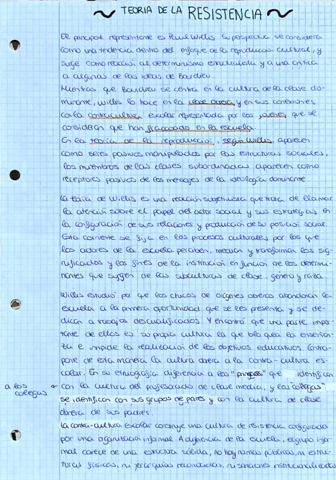 TEORIA DE LA RESISTENCIA
El principal representante es Paul Willis. Su perspectiva se considera
como una tendencia dentro del enfoque de la reproducción cultural, y
surge como reacción al determinismo estructuralista y a una crítica
a algunas de las ideas de Bourdieu.
Mientras que Bourdieu se centra en la cultura de la clase do-
minante, Willis lo hace en la clase obrera, y en sus conexiones
con la contracultura escolar representada por los jóvenes que se
consideran que han fracasado en la escuela.
En la teoría de la reproducción, según Willis, aparecen
como seres pasivos manipulados por las estructuras sociales,
los miembros de las clases subordinadas aparecen como
receptores pasivos de los mensajes de la ideología dominante
La teoría de Willis es una reacción subjetivista que trata de llamar
la atención sobre el papel del actor social y sus estrategias en
la configuración de sus relaciones y producción de su posición social.
Esta corriente se fija en los procesos culturales por los que
los actores de la escuela perciben, median y transforman los sig-
nificados y los fines de la institución en función de las determinacio-
nes que surgen de las subculturas de clase, género y raza.
Willis estudió por qué los chicos de orígenes obreros abandonan la
escuela a la primera oportunidad que se les presenta y se de-
dican a trabajos descualificados. Y encontró que una parte impor-
tante de ellos es su propia cultura la que bloquea la enseñan-
za e impide la realización de los objetivos educativos. Contra-
pone de esta manera la cultura obrera a la contra-cultura es-
colar. En su etnografía diferencia a los "pringaos" que identifican
con la cultura del profesorado de clase media, y los "colegas"
a los colegas
se identifican con sus grupos de pares y con la cultura de clase
obrera de sus padres.
La contra-cultura escolar constituye una cultura de resistencia configurada
por una organización informal. A diferencia de la escuela, el grupo infor-
mal carece de una estructura sólida, no hay normas públicas, ni estruc-
turas físicas, ni jerarquías reconocidas, ni sanciones institucionalizadas